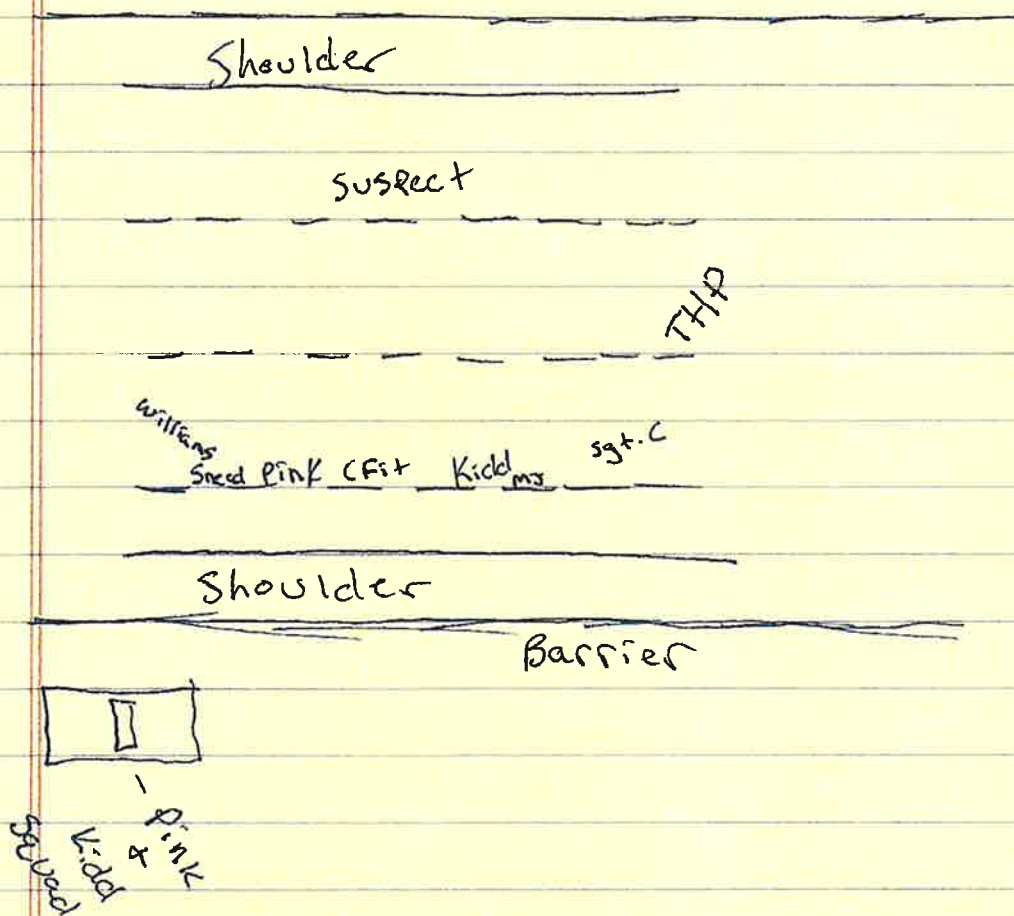 Shoulder
suspect
THP
Williams
Sneed Pink CFit Kidd MJ sgt. C
Shoulder
Barrier
Pink
+
Kidd
squad